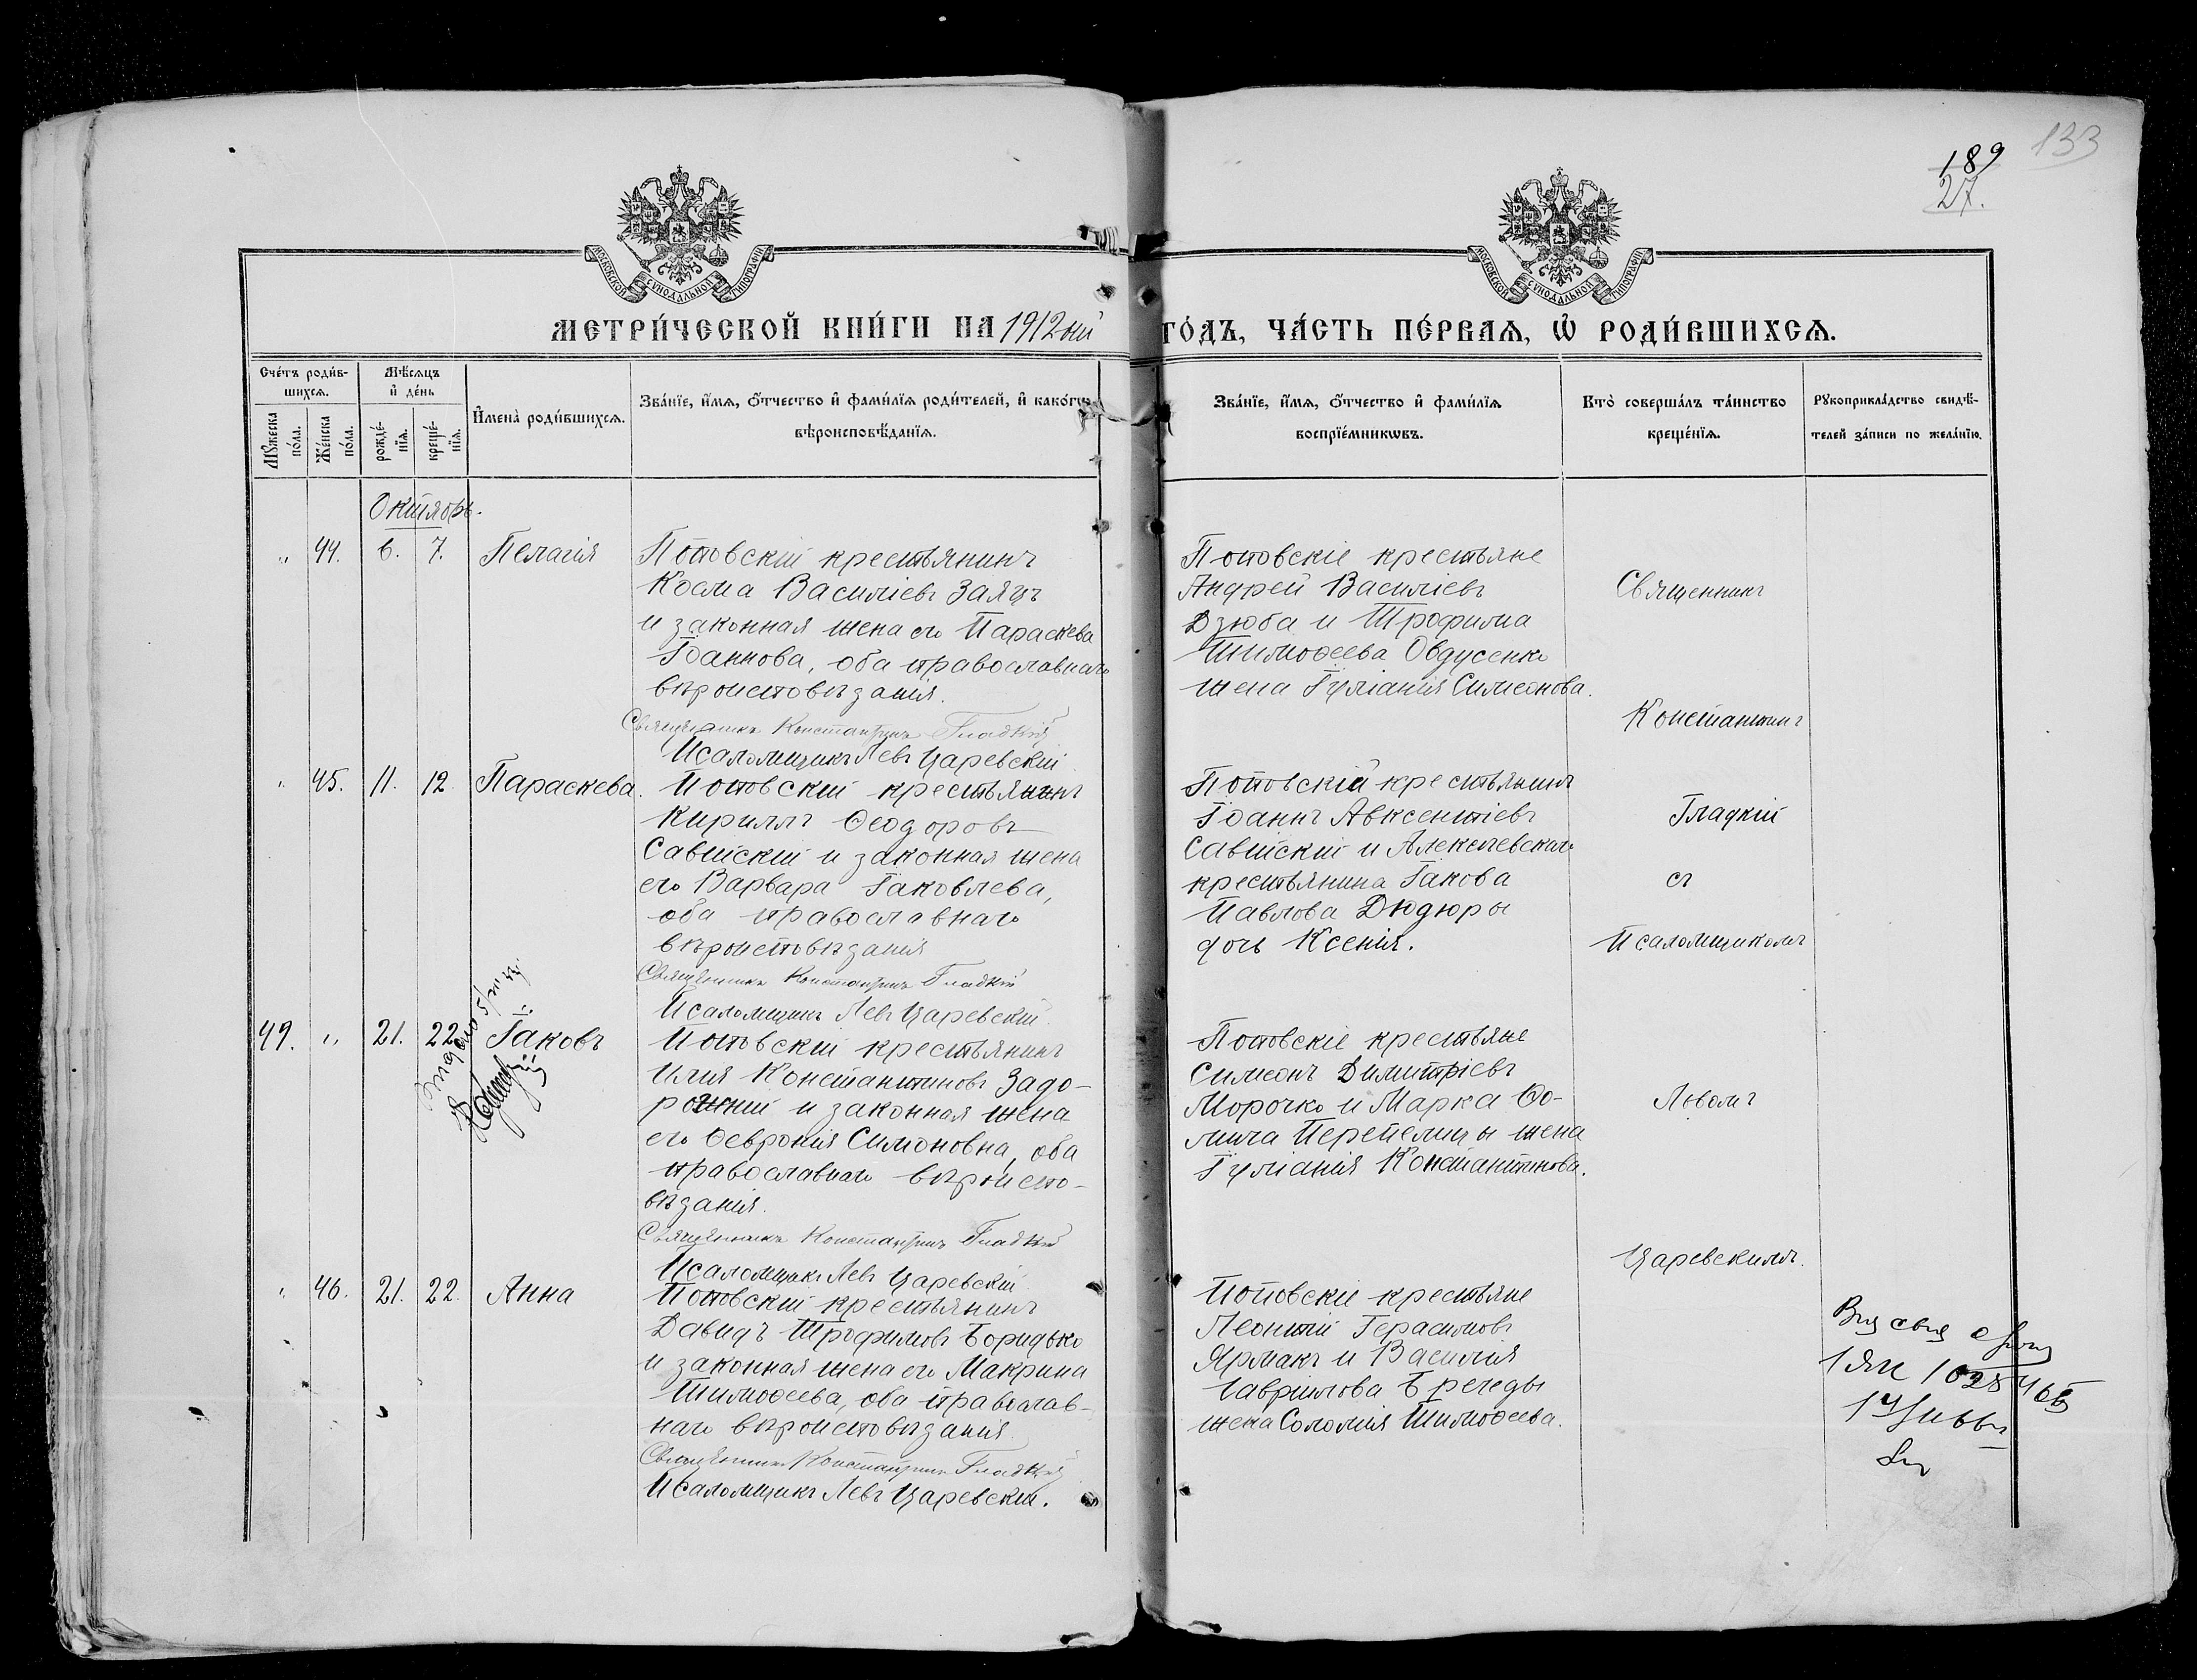 133
189
27.
МОСКОВСКОЙ СѴНОДАЛЬНОЙ ТИПОГРАФІИ
МОСКОВСКОЙ СѴНОДАЛЬНОЙ ТИПОГРАФІИ
МЕТРИ́ЧЕСКОЙ КНИ́ГИ НА 1912 ый ГО́ДЪ, ЧА́СТЬ ПЕ́РВАЯ, Ѡ҆ РОДИ́ВШИХСЯ.
Сче́тъ роди́в-
шихся.
Мꙋ́жеска
по́ла.
Же́нска
по́ла.
Мѣ́сяцъ
и҆ де́нь
рожде́-
нїя.
креще́-
нїя.
И҆мена̀ роди́вшихся.
Зва́нїе, и҆́мя, ѻ҆́тчество и҆ фами́лїя роди́телей, и҆ како́гѡ
вѣроисповѣ́данїя.
Зва́нїе, и҆́мя, ѻ҆́тчество и҆ фами́лїя
воспрїе́мникѡвъ.
Кто̀ соверша́лъ та́инство
креще́нїя.
Рꙋкоприкла́дство свидѣ́-
телей за́писи по жела́нїю.
Октябрь.
„ 44. 6. 7. Пелагія
Поповскій крестьянинъ
Косма Василіевъ Заяцъ
и законная жена его Параскева
Іоаннова, оба православнаго
вѣроисповѣданія.
Священникъ Константинъ Гладкій
Псаломщикъ Левъ Царевскій
Поповскіе крестьяне
Андрей Василіевъ
Дзюба и Трофима
Тимоѳеева Овдусенко
жена Іуліанія Симеонова.
Священникъ
Константинъ
Гладкій
съ
Псаломщикомъ
Львомъ
Царевскимъ.
„ 45. 11. 12. Параскева.
Поповскій крестьянинъ
Кириллъ Ѳеодоровъ
Савійскій и законная жена
его Варвара Іаковлева,
оба православнаго
вѣроисповѣданія
Священникъ Константинъ Гладкій
Псаломщикъ Левъ Царевскій.
Поповскій крестьянинъ
Іоаннъ Авксентіевъ
Савійскій и
крестьянина Іакова
Павлова Дюдюры
дочь Ксенія.
49. „ 21. 22. Іаковъ
Поповскій крестьянинъ
Илія Константиновъ Задо-
рожній и законная жена
его Ѳевронія Симоновна, оба
православнаго вѣроиспо-
вѣданія.
Священникъ Константинъ Гладкій
Псаломщикъ Левъ Царевскій.
Поповскіе крестьяне
Симеонъ Димитріевъ
Морочко и Марка Ѳо-
мича Перепелицы жена
Іуліанія Константинова.
„ 46. 21. 22. Анна
Поповскій крестьянинъ
Давидъ Трофимовъ Боридько
и законная жена его Макрина
Тимоѳеева, оба православ-
наго вѣроисповѣданія.
Священникъ Константинъ Гладкій
Псаломщикъ Левъ Царевскій.
Поповскіе крестьяне
Леонтій Герасимовъ
Ярмакъ и Василія
Гавріилова Бреледы
жена Соломія Тимоѳеева.